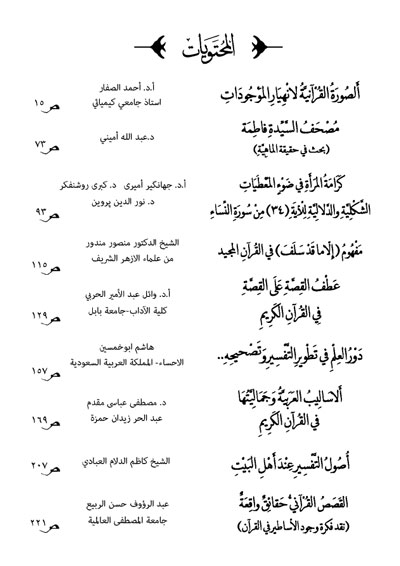 المحتويات
أَلصُورَةُ القُرْآنِيَّةُ لانْهِيَارِ المَوْجُودَاتِ
أ.د. أحمد الصفار
استاذ جامعي كيميائي
ص١٥
مُصْحَفُ السَّيِّدَةِ فَاطِمَة
(بحث في حقيقة الماهيّة)
د.عبد الله أميني
ص٧٣
كَرَامَةُ المَرْأَةِ فِي ضَوْءِ المُعْطَيَاتِ
الشَّكْلِيَّةِ والدَّلالِيَّةِ لِلآيَةِ (٣٤) مِنْ سُورَةِ النِّسَاءِ
أ.د. جهانكير أميرى د. كبرى روشنفكر
د. نور الدين بروين
ص٩٣
مَفْهُومُ (إلّا مَا قَدْ سَلَفَ) في القُرآنِ المجيد
الشيخ الدكتور منصور مندور
من علماء الازهر الشريف
ص١١٥
عَطْفُ القِصَّةِ عَلَى القِصَّةِ
فِي القُرآنِ الكَرِيمِ
أ.د. وائل عبد الأمير الحربي
كلية الآداب-جامعة بابل
ص١٢٩
دَوْرُ العِلْمِ فِي تَطْوِيرِ التَّفْسِيرِ وَتَصْحِيحِهِ..
هاشم ابوخمسين
الاحساء- المملكة العربية السعودية
ص١٥٧
أَلاسَالِيبُ العَرَبِيَّةُ وَجَمَالِيَّتُهَا
في القُرآنِ الكَرِيمِ
د. مصطفى عباسى مقدم
عبد الحر زيدان حمزة
ص١٦٩
أُصُولُ التَّفْسِيرِ عِنْدَ أَهْلِ البَيْتِ
الشيخ كاظم الدلام العبادي
ص٢٠٧
القَصَصُ القُرْآنيُّ حَقَائِقٌ وَاقِعَةٌ
(نقد فكرة وجود الأساطير في القرآن)
عبد الرؤوف حسن الربيع
جامعة المصطفى العالمية
ص٢٢١